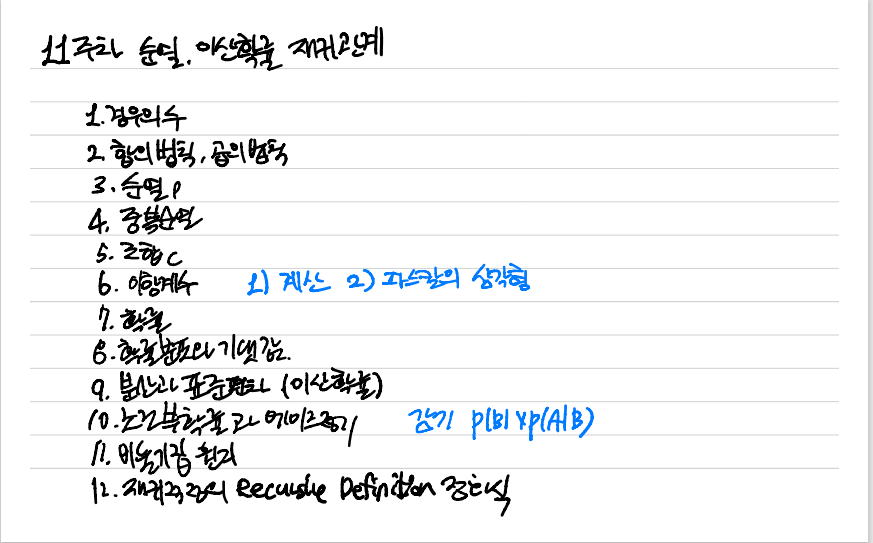 11주차 순열, 이산확률 재귀관계
1. 경우의수
2. 합의법칙, 곱의법칙
3. 순열 P
4. 중복순열
5. 조합 C
6. 이항계수 1) 계산 2) 파스칼의 삼각형
7. 확률
8. 확률분포와 기댓값.
9. 분산과 표준편차 (이산확률)
10. 조건부확률과 베이즈정리 감기 P(B) x P(A|B)
11. 비둘기집 원리
12. 재귀적정의 Recursive Definition 점화식